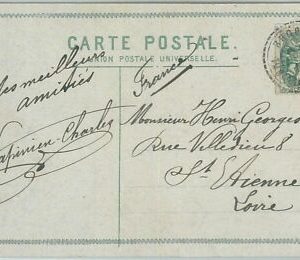 CARTE POSTALE.
UNION POSTALE UNIVERSELLE.
France
les meilleurs
amitiés
Charles
Monsieur Henri Georges
Rue Villedieu 8
St Etienne
Loire